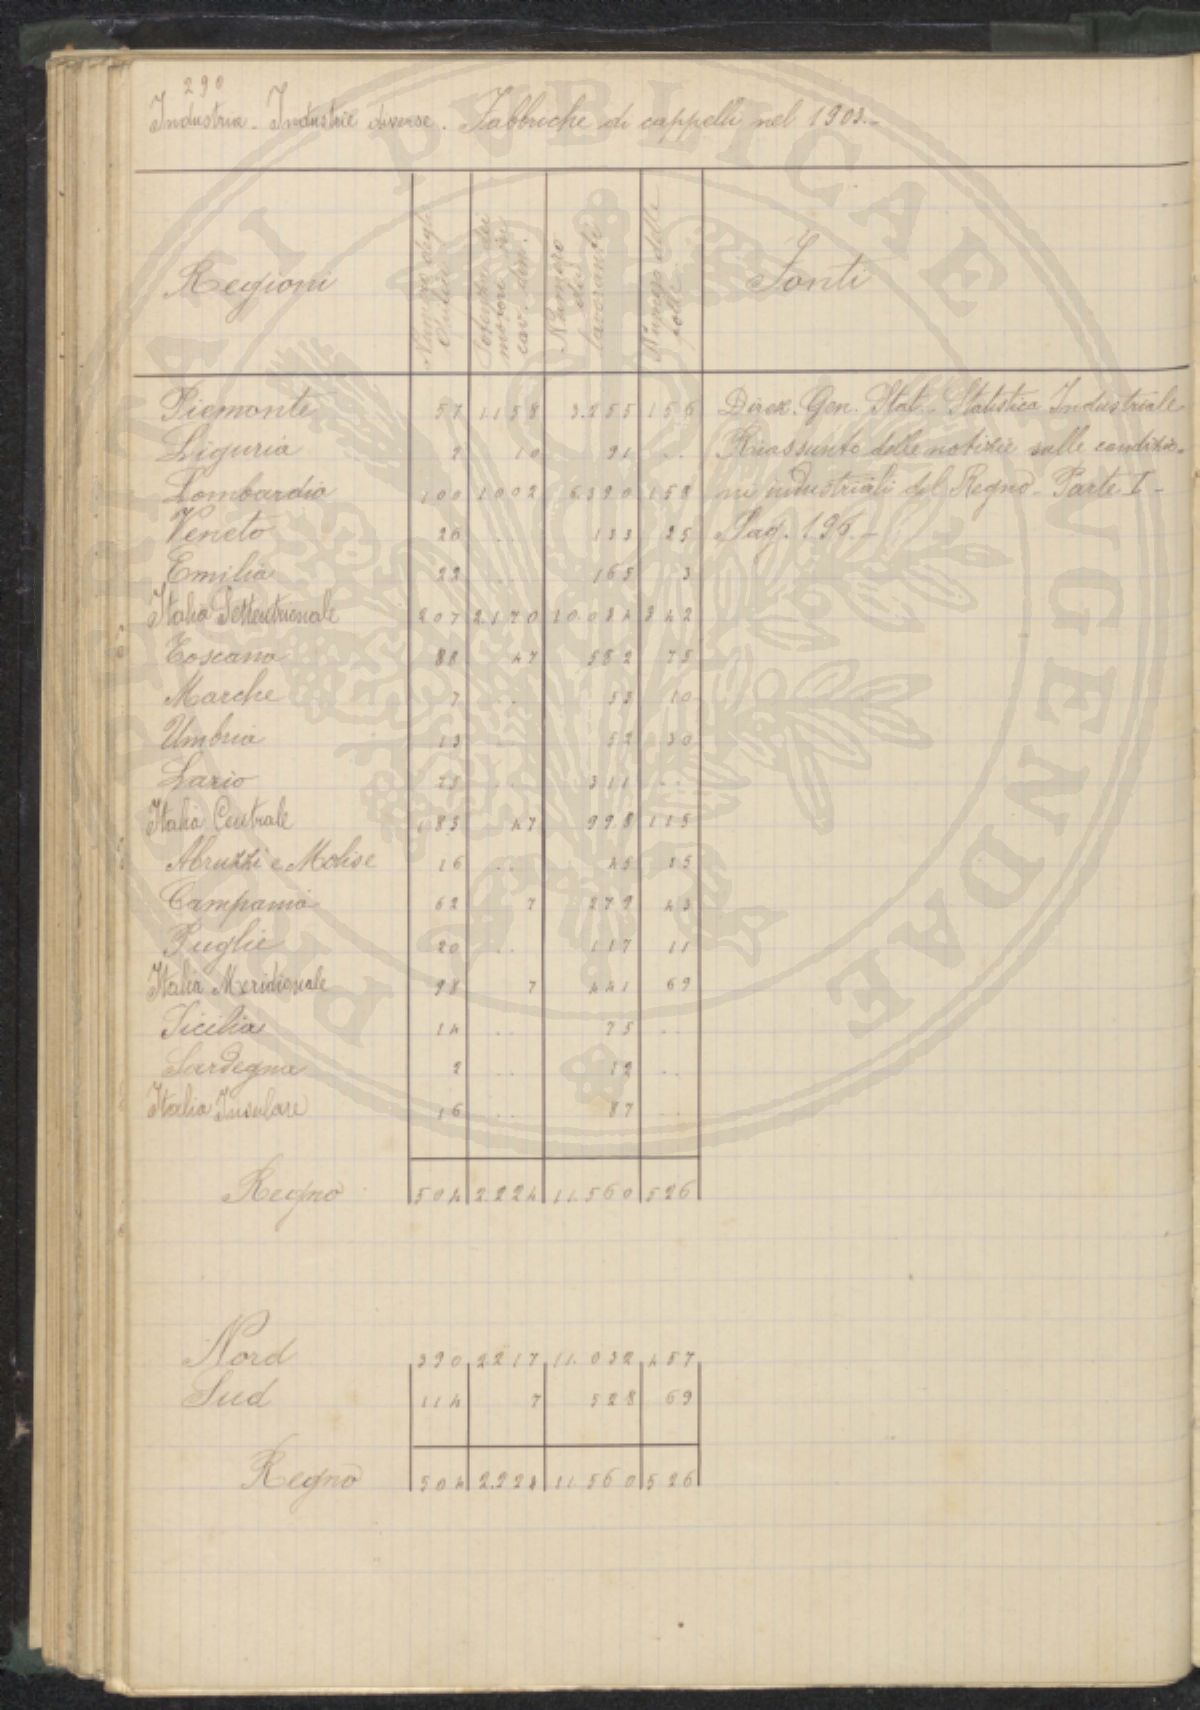 290
Industria - Industrie diverse. Fabbriche di cappelli nel 1903.-
Regioni | Numero degli Opifici | Potenza dei motori in cav. din. | Numero dei lavoranti | Numero delle folle | Fonti
Piemonte 57 1158 3.255 156 Direz. Gen. Stat. - Statistica Industriale
Liguria 2 10 91 .. Riassunto delle notizie sulle condizio-
Lombardia 100 1002 6.390 158 ni industriali del Regno - Parte I -
Veneto 26 .. 133 25 Pag. 196.-
Emilia 22 .. 165 3
Italia Settentrionale 207 2.170 10.034 342
Toscana 88 47 582 75
Marche 7 .. 53 10
Umbria 13 .. 52 30
Lazio 75 .. 311 ..
Italia Centrale 183 47 998 115
Abruzzi e Molise 16 .. 45 15
Campania 62 7 279 43
Puglie 20 .. 117 11
Italia Meridionale 98 7 441 69
Sicilia 14 .. 75 ..
Sardegna 2 .. 12 ..
Italia Insulare 16 .. 87 ..
Regno 504 2.224 11.560 526
Nord 390 2217 11.032 457
Sud 114 7 528 69
Regno 504 2.224 11.560 526
PUBLICAE